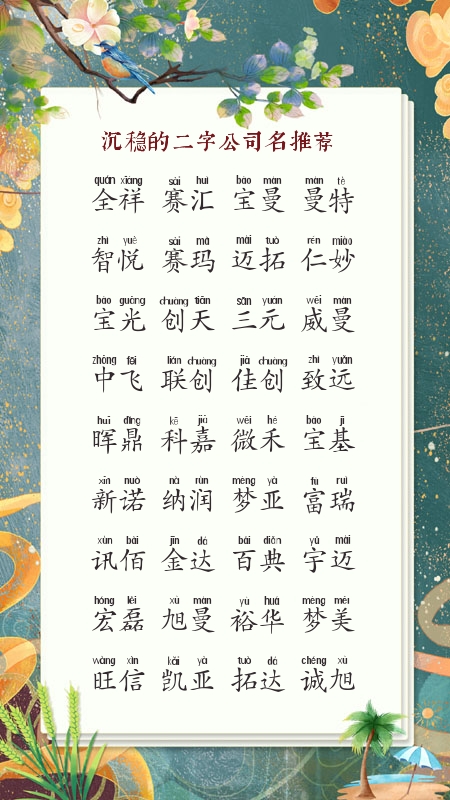 沉稳的二字公司名推荐
quán xiáng sài huì bǎo màn màn tè
全祥 赛汇 宝曼 曼特
zhì yuè sài mǎ mài tuò rén miào
智悦 赛玛 迈拓 仁妙
bǎo guāng chuàng tiān sān yuán wēi màn
宝光 创天 三元 威曼
zhōng fēi lián chuàng jiā chuàng zhì yuǎn
中飞 联创 佳创 致远
huī dǐng kē jiā wēi hé bǎo jī
晖鼎 科嘉 微禾 宝基
xīn nuò nà rùn mèng yà fù ruì
新诺 纳润 梦亚 富瑞
xùn bǎi jīn dá bǎi diǎn yǔ mài
讯佰 金达 百典 宇迈
hóng lěi xù màn yù huá mèng měi
宏磊 旭曼 裕华 梦美
wàng xìn kǎi yà tuò dá chéng xù
旺信 凯亚 拓达 诚旭